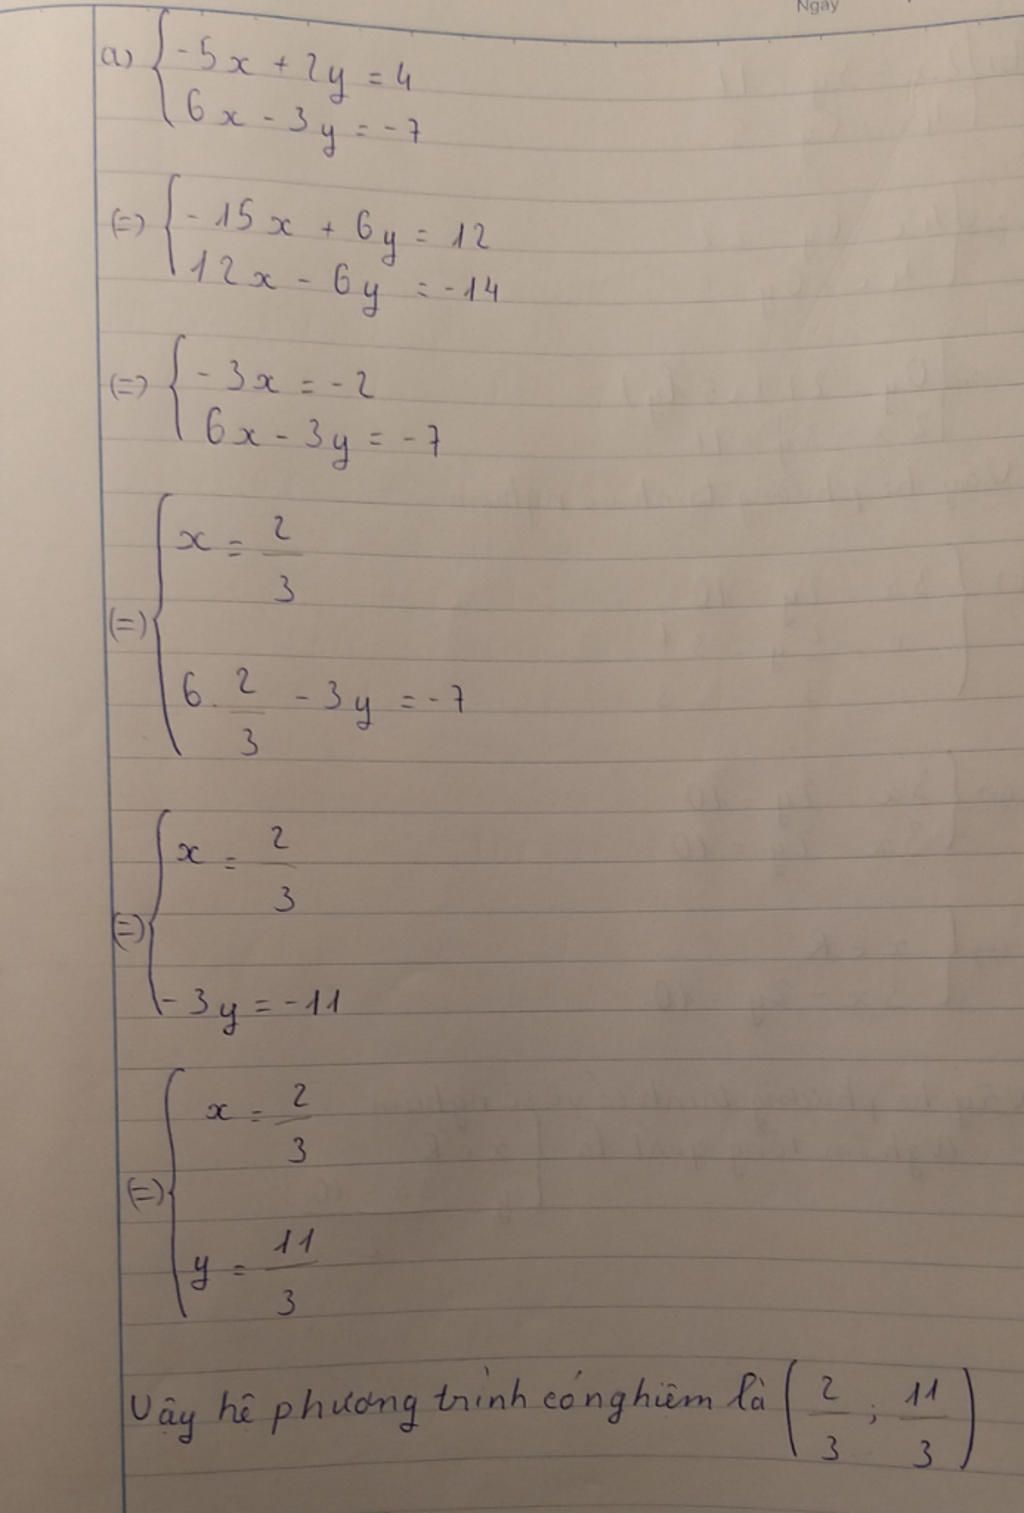 Ngày
a) { -5x + 2y = 4
6x - 3y = -7
(=) { -15x + 6y = 12
12x - 6y = -14
(=) { -3x = -2
6x - 3y = -7
(=) { x = 2/3
6 . 2/3 - 3y = -7
(=) { x = 2/3
-3y = -11
(=) { x = 2/3
y = 11/3
Vậy hệ phương trình có nghiêm là (2/3 ; 11/3)